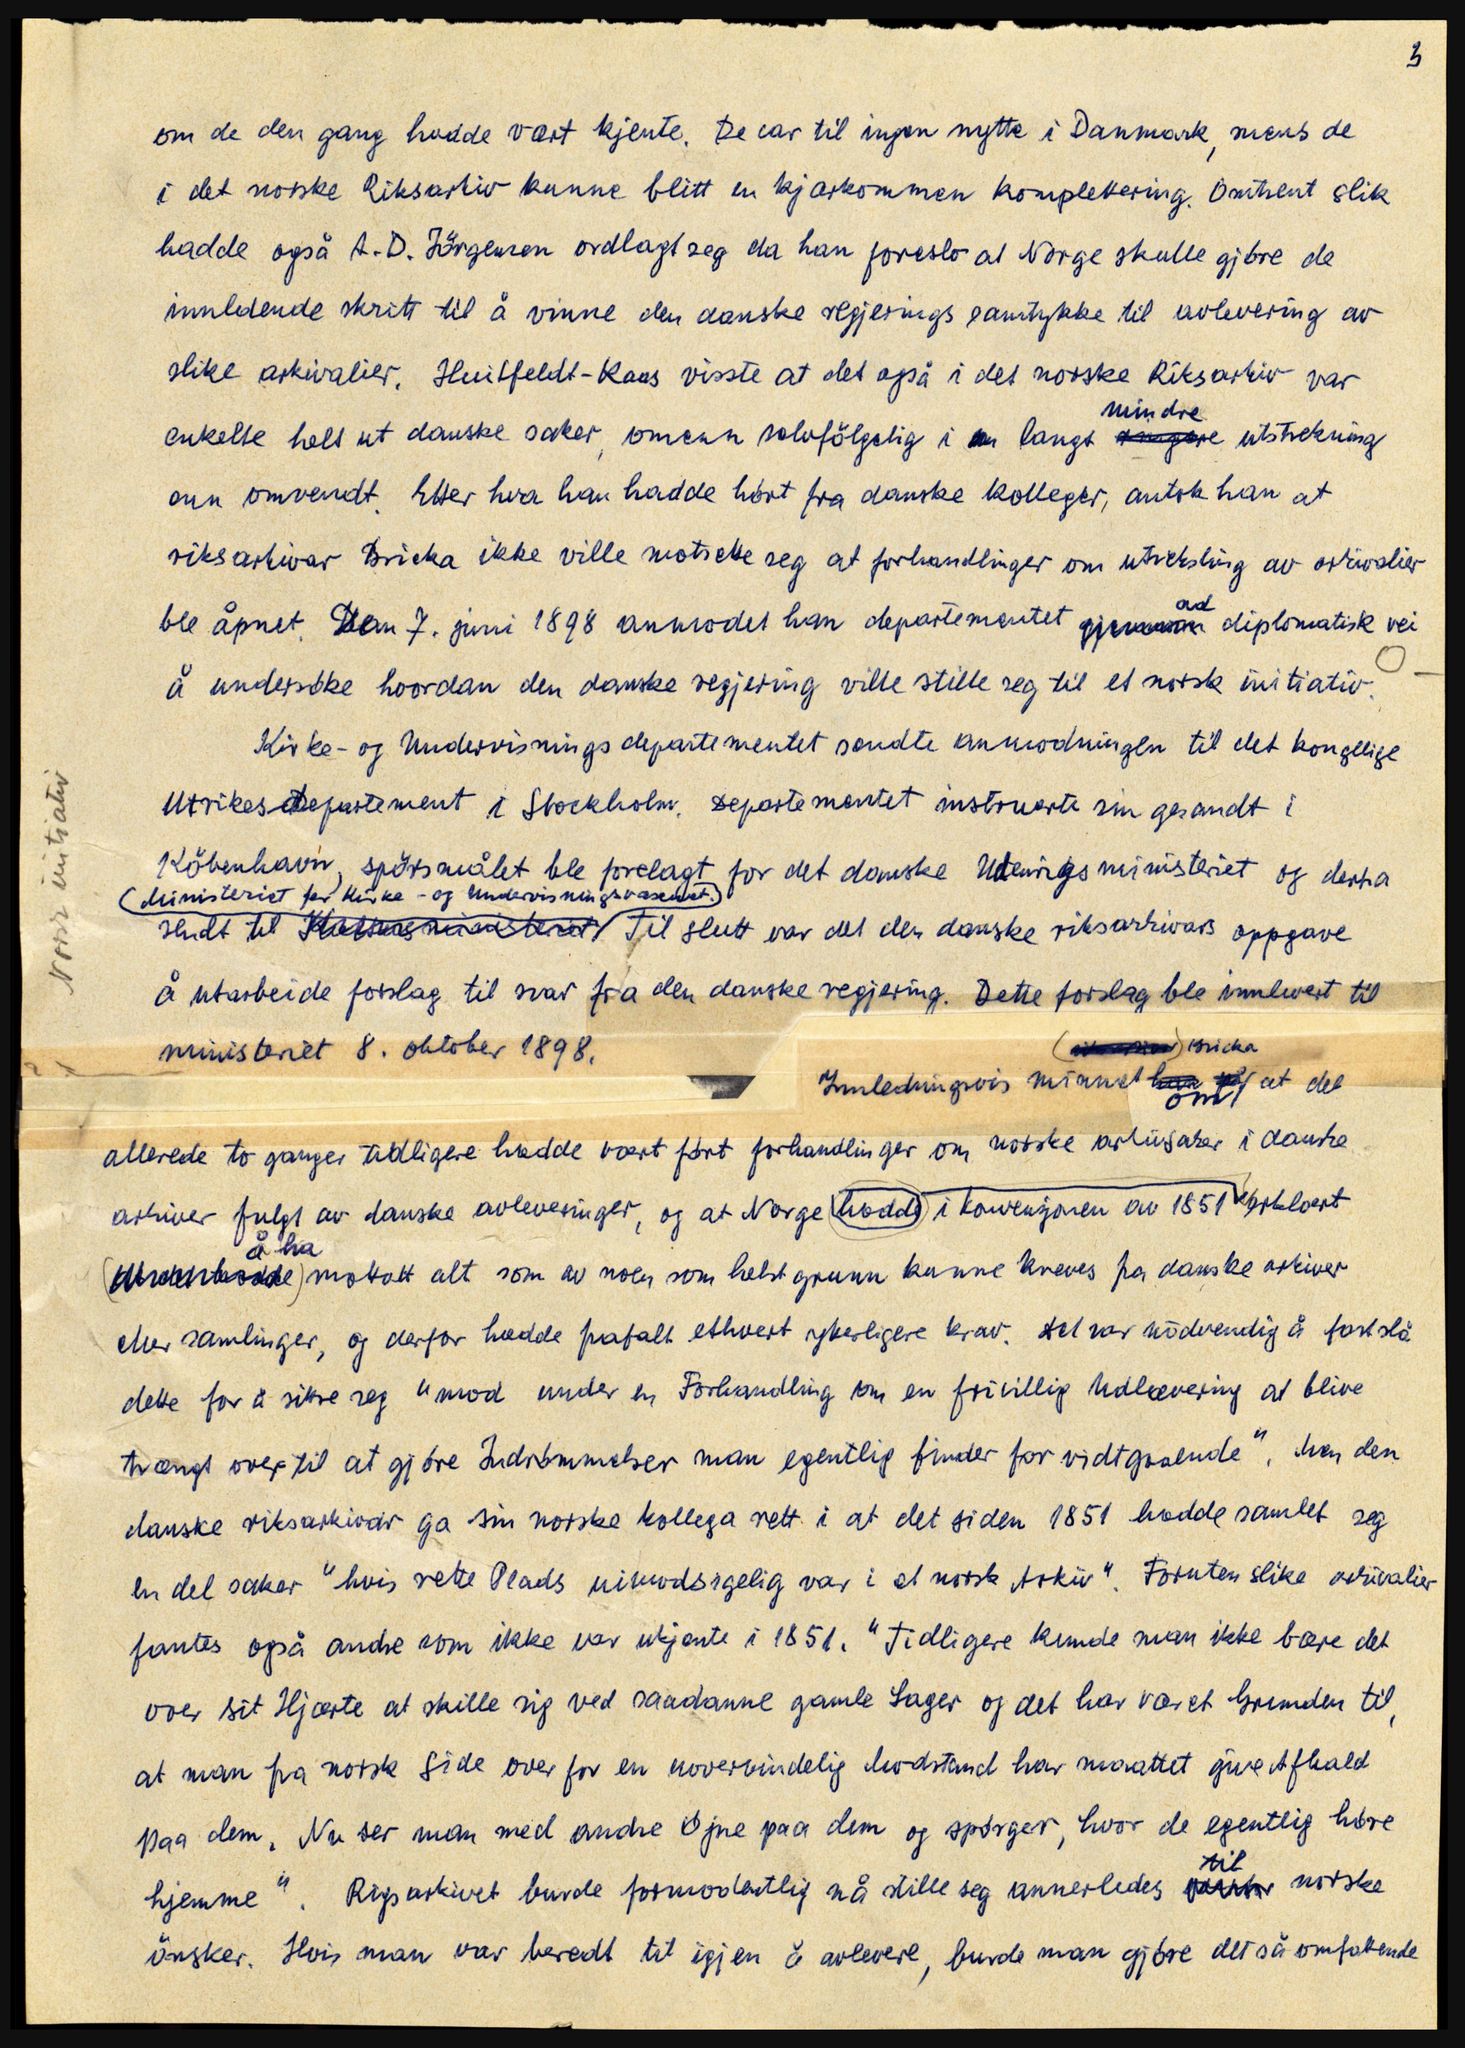 3
om de den gang hadde vært kjente. De var til ingen nytte i Danmark, mens de
i det norske Riksarkiv kunne blitt en kjærkommen komplettering. Omtrent slik
hadde også A.D. Jörgensen ordlagt seg da han foreslo at Norge skulle gjøre de
innledende skritt til å vinne den danske regjerings samtykke til avlevering av
slike arkivalier. Huitfeldt-Kaas visste at det også i det norske Riksarkiv var
mindre
enkelte helt ut danske saker, omenn selvfölgelig i langt ringere utstrekning
enn omvendt. Etter hva han hadde hørt fra danske kolleger, antok han at
riksarkivar Bricka ikke ville motsette seg at forhandlinger om utveksling av arkivalier
ad
ble åpnet. Den 7. juni 1898 anmodet han departementet gjennom diplomatisk vei
å undersøke hvordan den danske regjering ville stille seg til et norsk initiativ.
Norsk initiativ
Kirke- og Undervisningsdepartementet sendte anmodningen til det kongelige
Utrikesdepartement i Stockholm. Departementet instruerte sin gesandt i
København, spörsmålet ble forelagt for det danske Udenrigsministeriet og derfra
(Ministeriet for Kirke- og Undervisningsvæsenet.)
sendt til Kultusministeriet Til slutt var det den danske riksarkivars oppgave
å utarbeide forslag til svar fra den danske regjering. Dette forslag ble innlevert til
ministeriet 8. oktober 1898.
Bricka
Innledningsvis minnet han om at det
allerede to ganger tidligere hadde vært ført forhandlinger om norske arkivsaker i danske
arkiver fulgt av danske avleveringer, og at Norge hadde i konvensjonen av 1851 erklært
å ha
mottatt alt som av noen som helst grunn kunne kreves fra danske arkiver
eller samlinger, og derfor hadde frafalt ethvert ytterligere krav. Det var nödvendig å fastslå
dette for å sikre seg "mod under en Forhandling om en frivillig Udlevering at blive
trængt over til at gjøre Indrømmelser man egentlig finder for vidtgaaende". Men den
danske riksarkivar ga sin norske kollega rett i at det siden 1851 hadde samlet seg
en del saker "hvis rette Plads uimodsigelig var i et norsk Arkiv". Foruten slike arkivalier
fantes også andre som ikke var ukjente i 1851. "Tidligere kunde man ikke bære det
over sit Hjærte at skille sig ved saadanne gamle Sager og det har været Grunden til,
at man fra norsk Side over for en uovervindelig Modstand har maattet give Afkald
paa dem. Nu ser man med andre Øjne paa dem og spørger, hvor de egentlig høre
til
hjemme". Rigsarkivet burde formodentlig nå stille seg annerledes overfor norske
önsker. Hvis man var beredt til igjen å avlevere, burde man gjøre det så omfattende